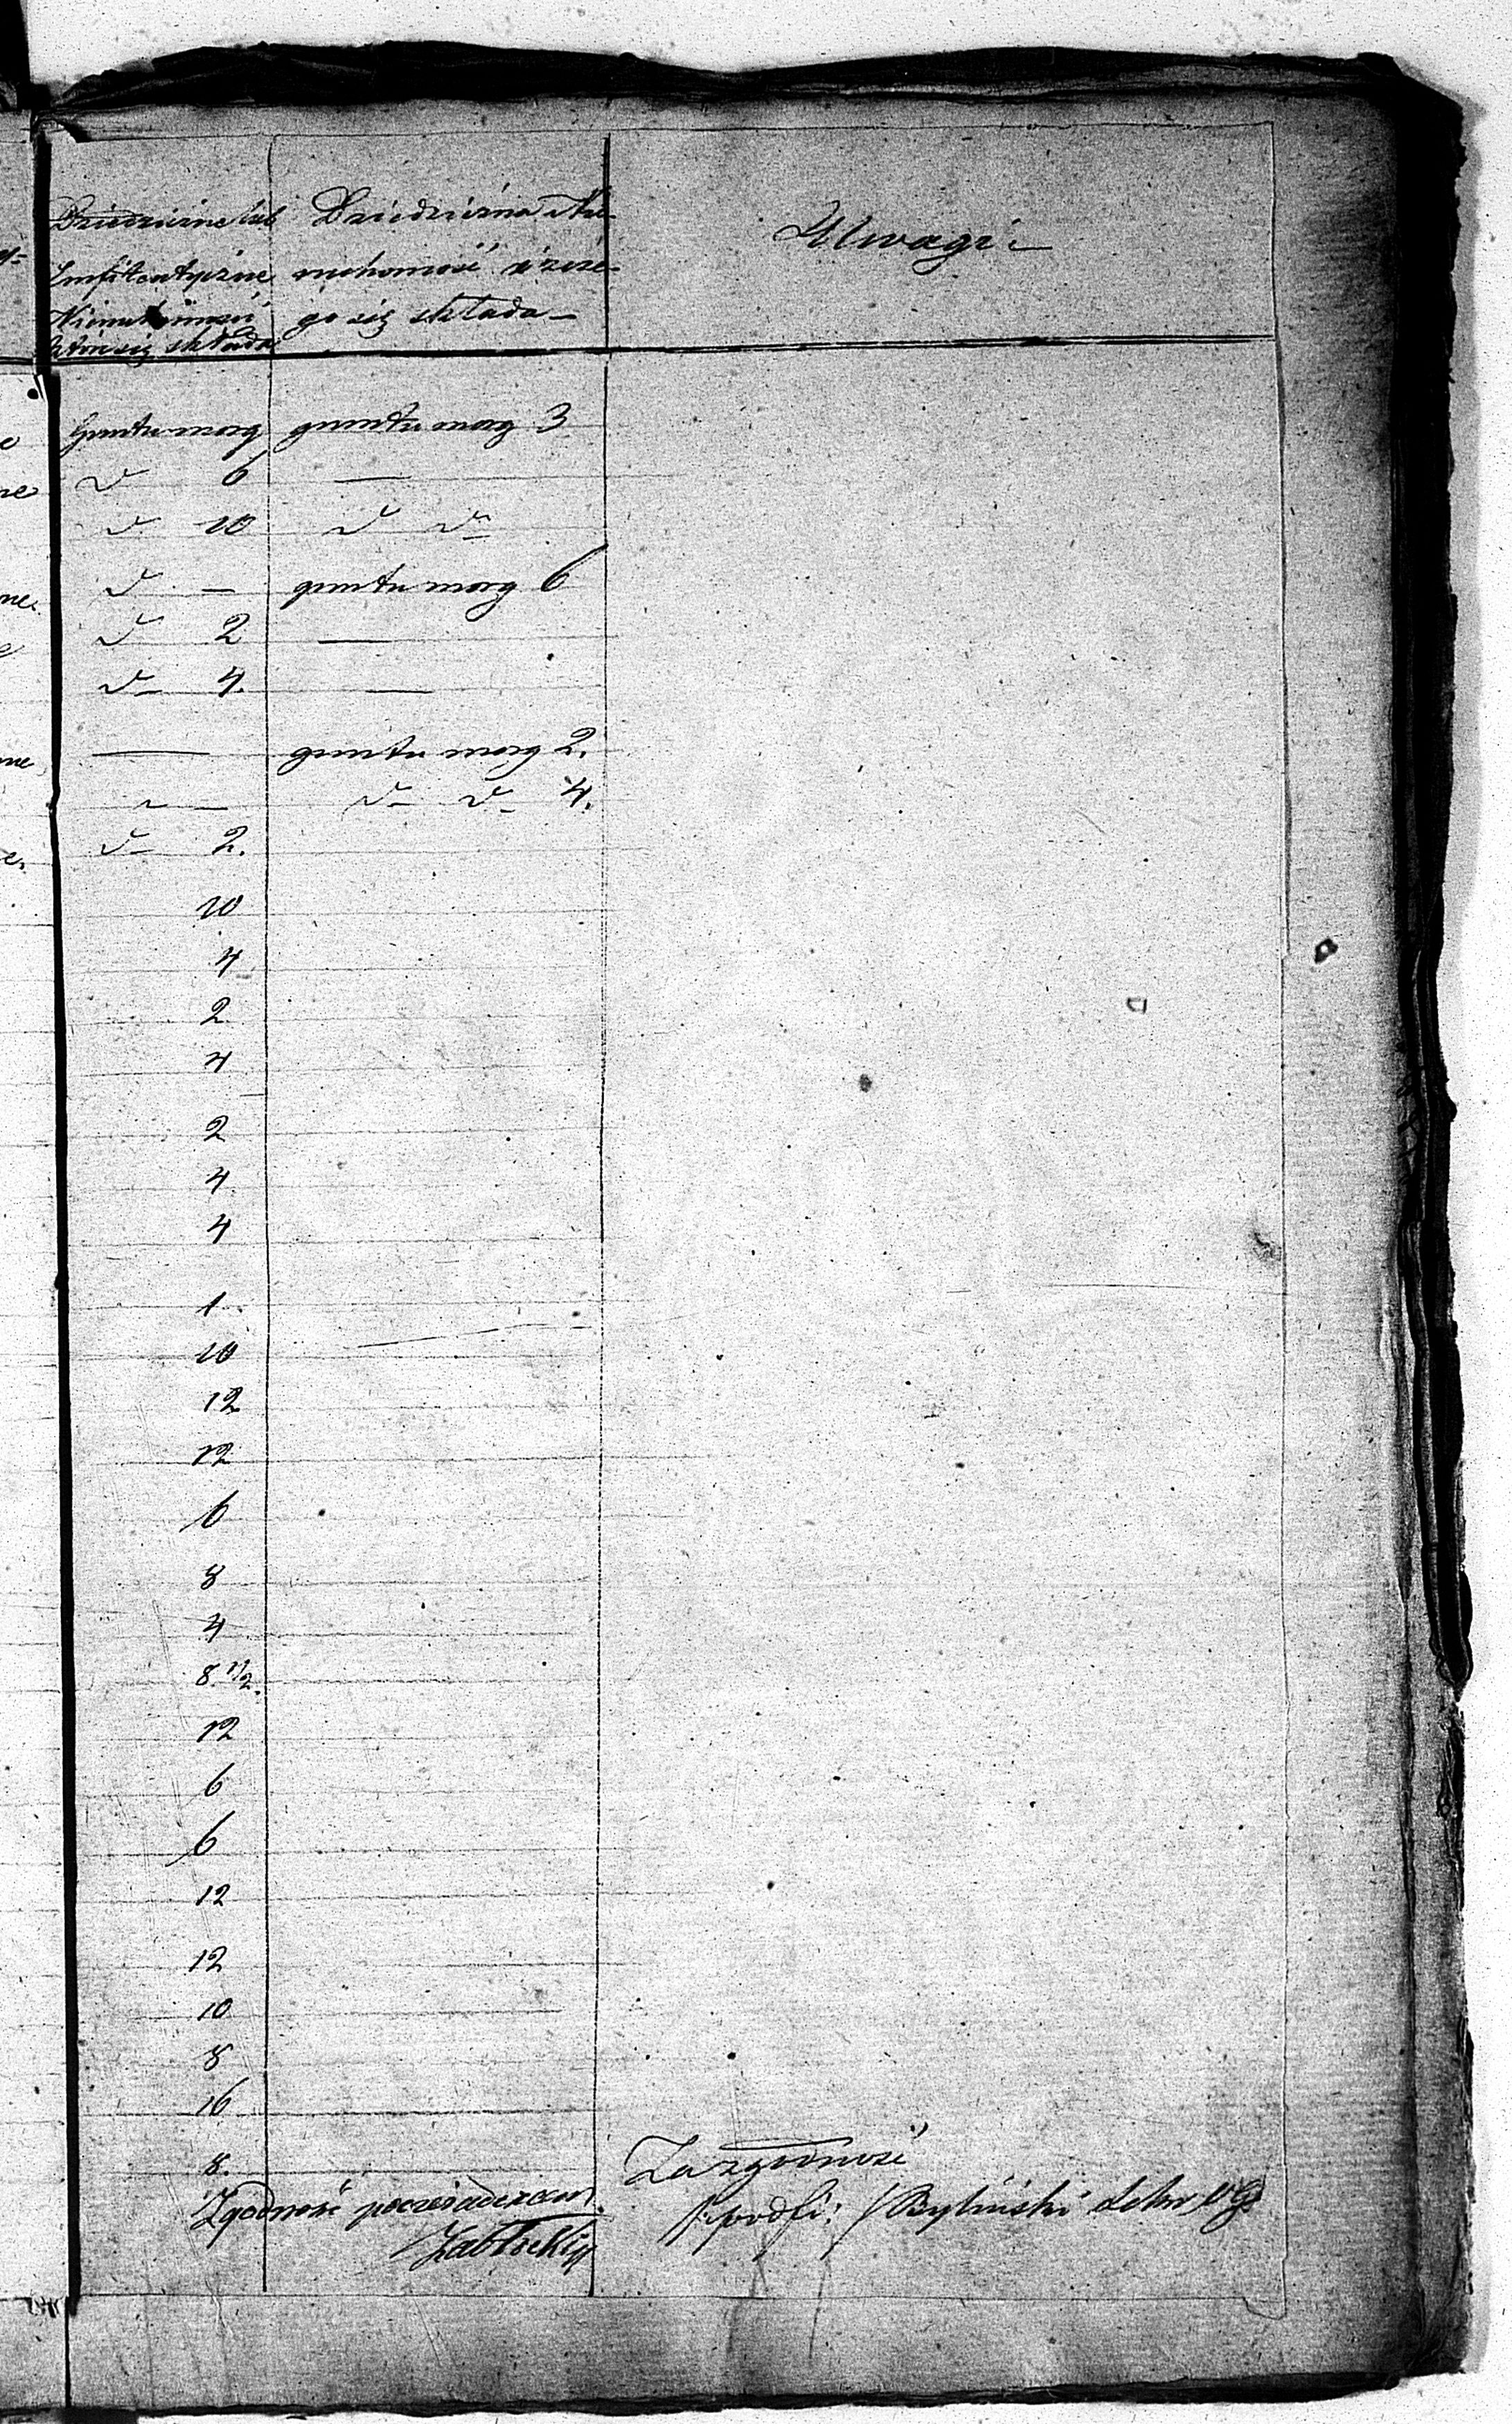 Dziedziczne lub
Emfiteutyczne
Nieruchomości
z składa
Dziedziczna Nie-
ruchomość z cze-
go się składa —
Uwagi
Gruntu morg gruntu morg 3
d° 6 —
d° 10 d° d°
d° — gruntu morg 6
d° 2 —
d° 4. —
— gruntu morg 2.
— d° d° 4.
d° 2.
10
4
2
4
2
4
4
1
10
12
12
6
8
4
8. 1/2.
12
6
6
12
12
10
8
16
8.
Zgodność poświadczam
Zabłocki
Za zgodność
/:podp: / Byliński Sekr